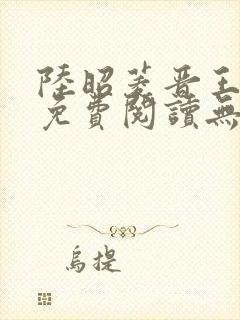 陸昭菱晋王
免費閱讀無
烏提